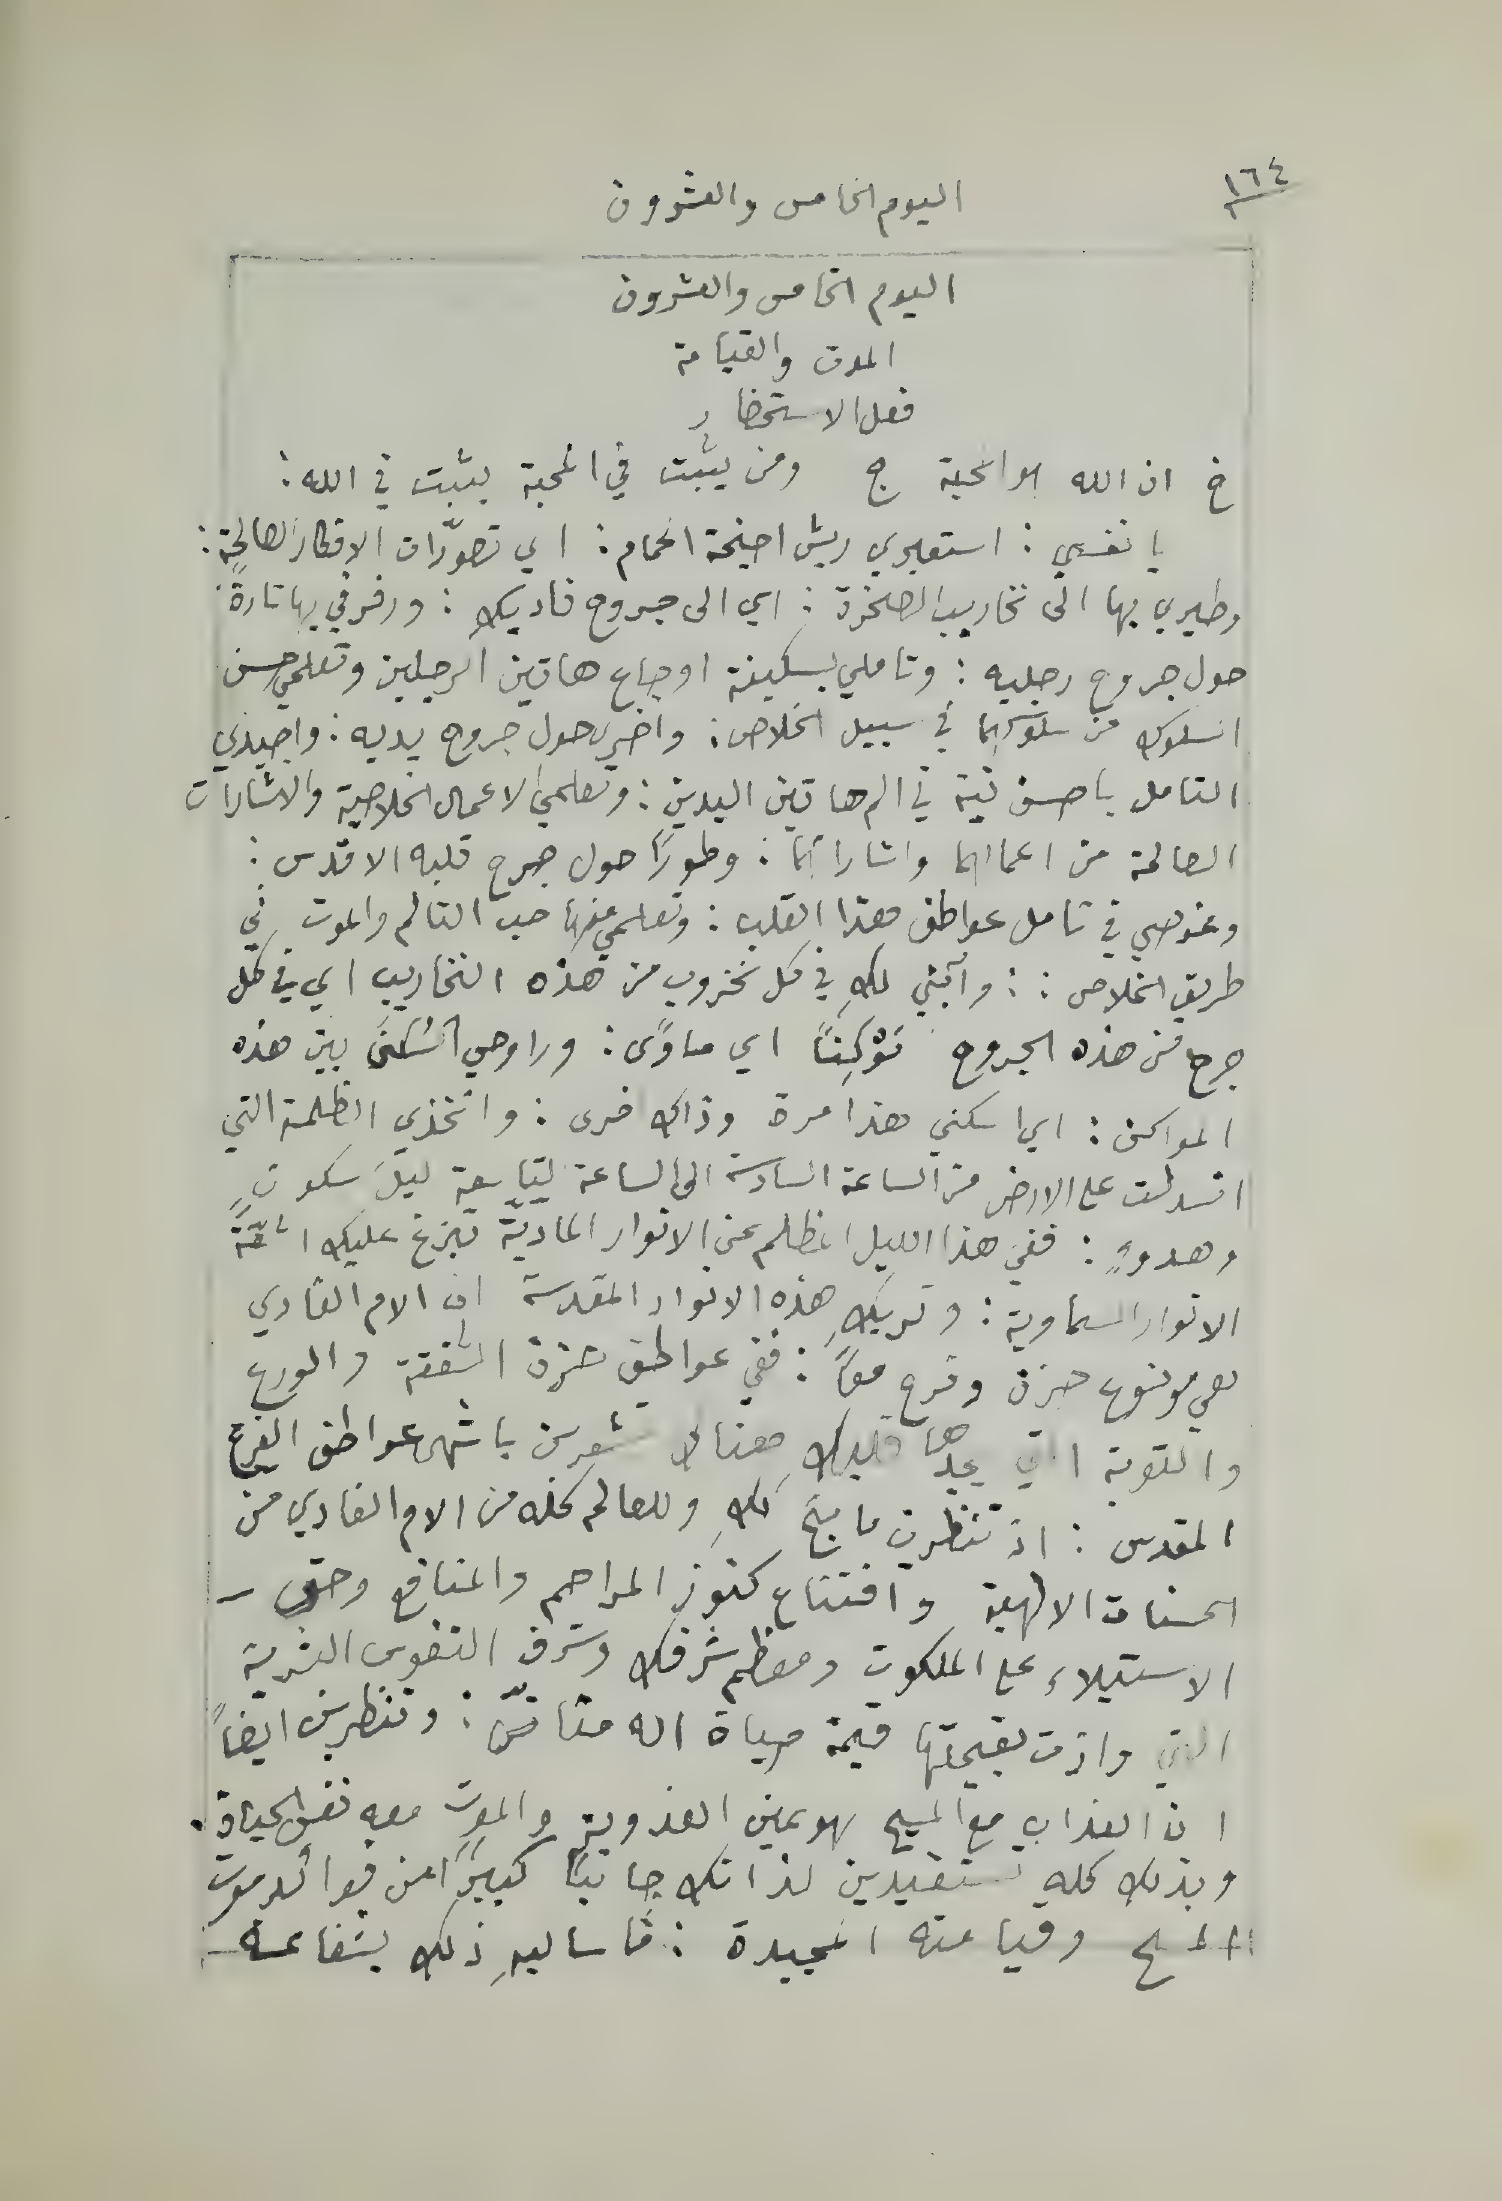 ١٦٤
اليوم الخامس والعشرون
اليوم الخامس والعشرون
الموت والقيامة
فعل الاستحضار
خ ان الله هو المحبة ج ومن يثبت في المحبة يثبت في الله :
يا نفسي : استعيري ريش اجنحة الحمام : اي تصوّرات الافكار الصالحة :
وطيري بها الى نخاريب الصخرة : اي الى جروح فاديكِ : ورفرفي بها تارةً
حول جروح رجليه : وتاملي بسكينة اوجاع هاتين الرجلين وتعلمي حسن
السلوك من سلوكهما في سبيل الخلاص : واخرى حول جروح يديه : واجيدي
التامل باحسن نية في الم هاتين اليدين : وتعلمي الاعمال الخلاصية والاشارات
الصالحة من اعمالهما واشاراتهما : وطورًا حول جرح قلبه الاقدس :
وغوصي في تامل عواطف هذا القلب : وتعلمي منها حب التالم والموت في
طريق الخلاص : : وابتني لكِ في كل نخروب من هذه النخاريب اي في كل
جرح من هذه الجروح مَوْكِنًا اي ماوًى : وراوحي السُكنى بين هذه
المواكن : اي اسكني هذا مرة وذاك اخرى : واتخذي الظلمة التي
انسدلت على الارض من الساعة السادسة الى الساعة التاسعة ليلَ سكوتٍ
وهدوءٍ : ففي هذا الليل المظلم عن الانوار الماديّة تبزغ عليك اشعّة
الانوار السماوية : وتريكِ هذه الانوار المقدسة ان الام الفادي
هي موضوع حزن وفرح معًا : ففي عواطف حزن الشفقة والورع
والتوبة التي يجدها قلبكِ هناك تشعرين باشهى عواطف الفرح
المقدس : اذ تنظرين ما نتج لكِ وللعالم كله من الام الفادي من
الحسنات الالهية وافتتاح كنوز المراحم والمنافع وحق
الاستيلاء على الملكوت ومعظم شرفك وشرف النفوس البشرية
التي وازت بقيمتها قيمة حياة اله متانّس : وتنظرين ايضًا
ان العذاب مع المسيح هو عين العذوبة والموت معه نفس الحياة .
وبذلك كله تستفيدين لذاتك جانبًا كبيرًا من فوائد موت
المسيح وقيامته المجيدة : فاساليهِ ذلك بشفاعة